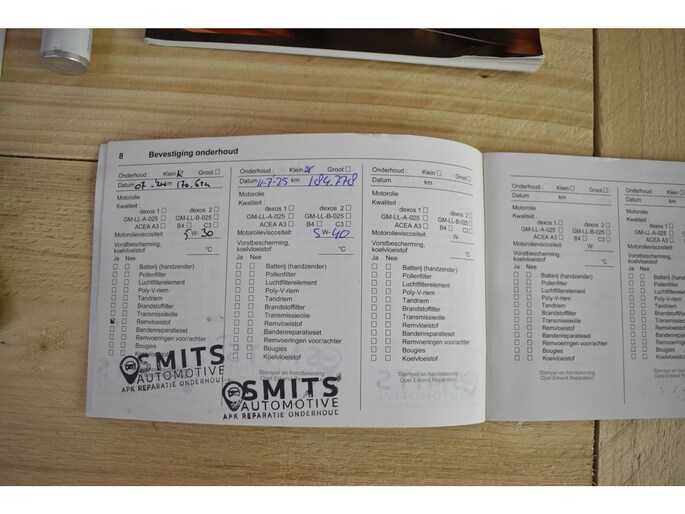 8 Bevestiging onderhoud
Onderhoud : Klein Groot
Datum 07 km
Motorolie
Kwaliteit :
dexos 1 dexos 2
GM-LL-A-025 GM-LL-B-025
ACEA A3 B4 C3
Motorolieviscositeit: 5 W- 30
Vorstbescherming, koelvloeistof °C
Ja Nee
Batterij (handzender)
Pollenfilter
Luchtfilterelement
Poly-V-riem
Tandriem
Brandstoffilter
Transmissieolie
Remvloeistof
Bandenreparatieset
Remvoeringen voor/achter
Bougies
SMITS
AUTOMOTIVE
APK REPARATIE ONDERHOUD
Onderhoud : Klein Groot
Datum 11-7-25 km 184.278
Motorolie
Kwaliteit :
dexos 1 dexos 2
GM-LL-A-025 GM-LL-B-025
ACEA A3 B4 C3
Motorolieviscositeit: 5 W- 40
Vorstbescherming, koelvloeistof °C
Ja Nee
Batterij (handzender)
Pollenfilter
Luchtfilterelement
Poly-V-riem
Tandriem
Brandstoffilter
Transmissieolie
Remvloeistof
Bandenreparatieset
Remvoeringen voor/achter
Bougies
Koelvloeistof
Stempel en handtekening
SMITS
AUTOMOTIVE
APK REPARATIE ONDERHOUD
Onderhoud : Klein Groot
Datum km
Motorolie
Kwaliteit :
dexos 1 dexos 2
GM-LL-A-025 GM-LL-B-025
ACEA A3 B4 C3
Motorolieviscositeit: W-
Vorstbescherming, koelvloeistof °C
Ja Nee
Batterij (handzender)
Pollenfilter
Luchtfilterelement
Poly-V-riem
Tandriem
Brandstoffilter
Transmissieolie
Remvloeistof
Bandenreparatieset
Remvoeringen voor/achter
Bougies
Koelvloeistof
Stempel en handtekening
Opel Erkend Reparateur
Onderhoud : Klein Groot
Datum km
Motorolie
Kwaliteit :
dexos 1 dexos 2
GM-LL-A-025 GM-LL-B-025
ACEA A3 B4 C3
Motorolieviscositeit: W-
Vorstbescherming, koelvloeistof °C
Ja Nee
Batterij (handzender)
Pollenfilter
Luchtfilterelement
Poly-V-riem
Tandriem
Brandstoffilter
Transmissieolie
Remvloeistof
Bandenreparatieset
Remvoeringen voor/achter
Bougies
Koelvloeistof
Stempel en handtekening
Opel Erkend Reparateur
Onderhoud :
Datum
Motorolie
Kwaliteit :
GM-LL
Motorolievisc
Vorstbescherm
koelvloeistof
Ja Nee